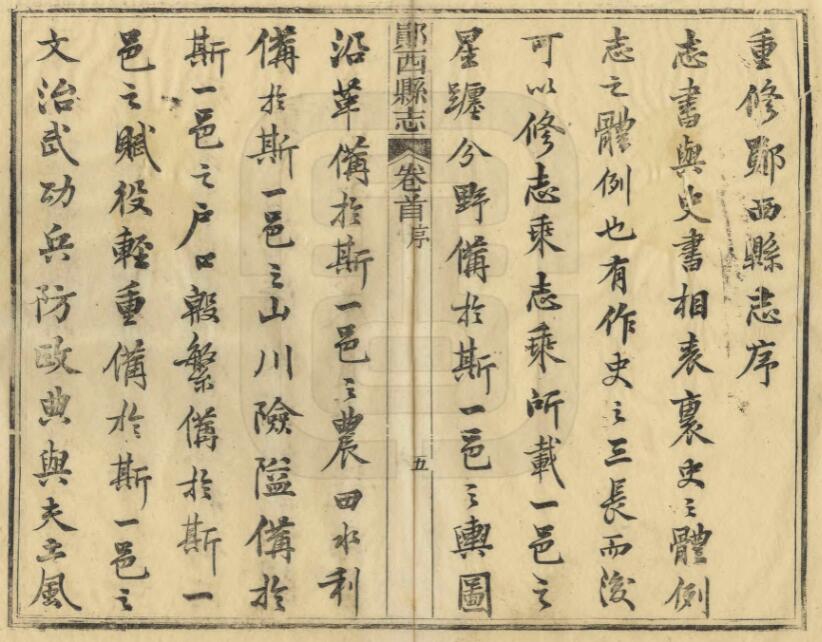 重修鄖西縣志序
志書與史書相表裏史之體例
志之體例也有作史之三長而後
可以修志乘志乘所載一邑之
星躔分野備於斯一邑之輿圖
鄖西縣志 卷首 序 五
沿革備於斯一邑之農田水利
備於斯一邑之山川險隘備於
斯一邑之户口殷繁備於斯一
邑之賦役輕重備於斯一邑之
文治武功兵防政典與夫土風